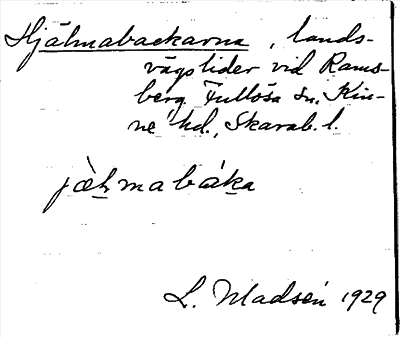 Hjälmabackarna, lands-
vägslider vid Rams-
berg Fullösa sn. Kin-
ne hd., Skarab. l.
jæ̀hmabáka
L. Madsén 1929